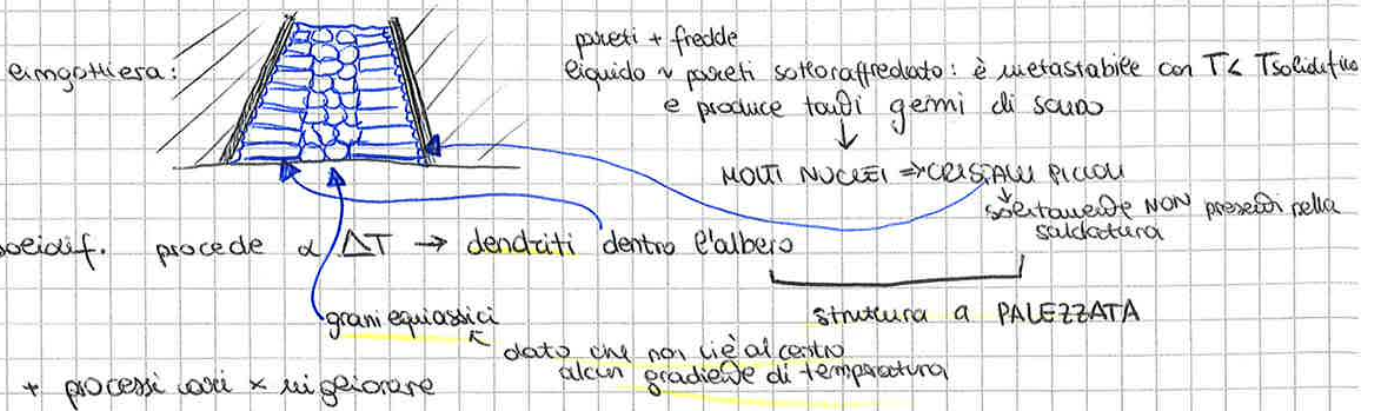 pareti + fredde
lingottiera: liquido ~ pareti sottoraffreddato: è metastabile con T< Tsolidific
e produce tanti germi di
↓
MOLTI NUCLEI ⇒ CRISTALLI PICCOLI
↓
solitamente NON presenti nella
saldatura
solidif. procede α ΔT → dendriti dentro l'albero
struttura a PALEZZATA
grani equiassici
dato che non vi è al centro
alcun gradiente di temperatura
+ processi vari x migliorare